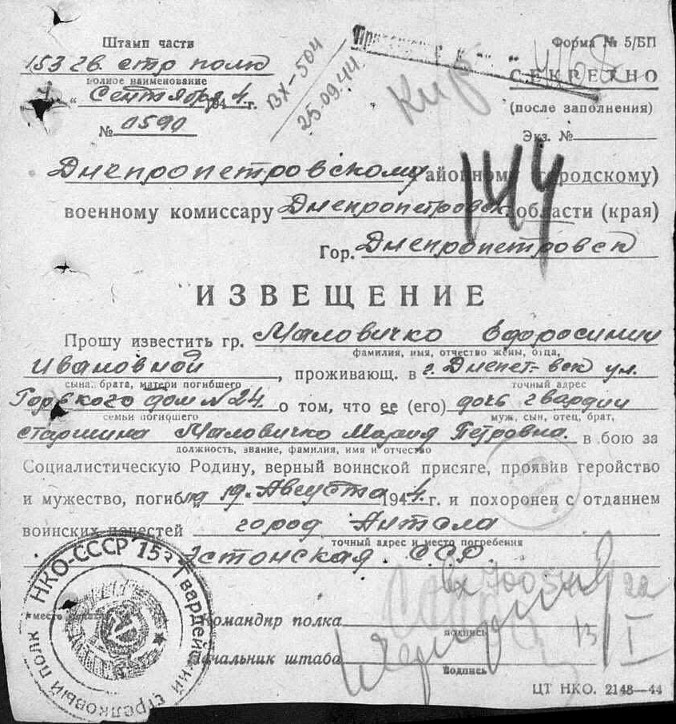 Штамп части
153 гв стр полк
полное наименование
" сентября 1944 г.
№ 0590
ВХ-504
25.09.44
Кир
Форма № 5/БП
СЕКРЕТНО
(после заполнения)
Экз. №
144
Днепропетровскому районному (городскому)
военному комиссару Днепропетровск. области (края)
Гор. Днепропетровск
ИЗВЕЩЕНИЕ
Прошу известить гр. Маловичко Ефросинии
фамилия, имя, отчество жены, отца,
Ивановной, проживающ. в г. Днепет-вск ул.
сына, брата, матери погибшего точный адрес
Горького дом №24. о том, что ее (его) дочь гвардии
семьи погибшего муж, сын, отец, брат,
старшина Маловичко Мария Петровна. в бою за
должность, звание, фамилия, имя и отчество
Социалистическую Родину, верный воинской присяге, проявив геройство
и мужество, погиб ла „19" Августа 1944. г. и похоронен с отданием
воинских почестей город Антсла
точный адрес и место погребения
Эстонская ССР
НКО-СССР 153 Гвардейский стрелковый полк
Вх
Командир полка
подпись
Начальник штаба
подпись
ЦТ НКО. 2148—44